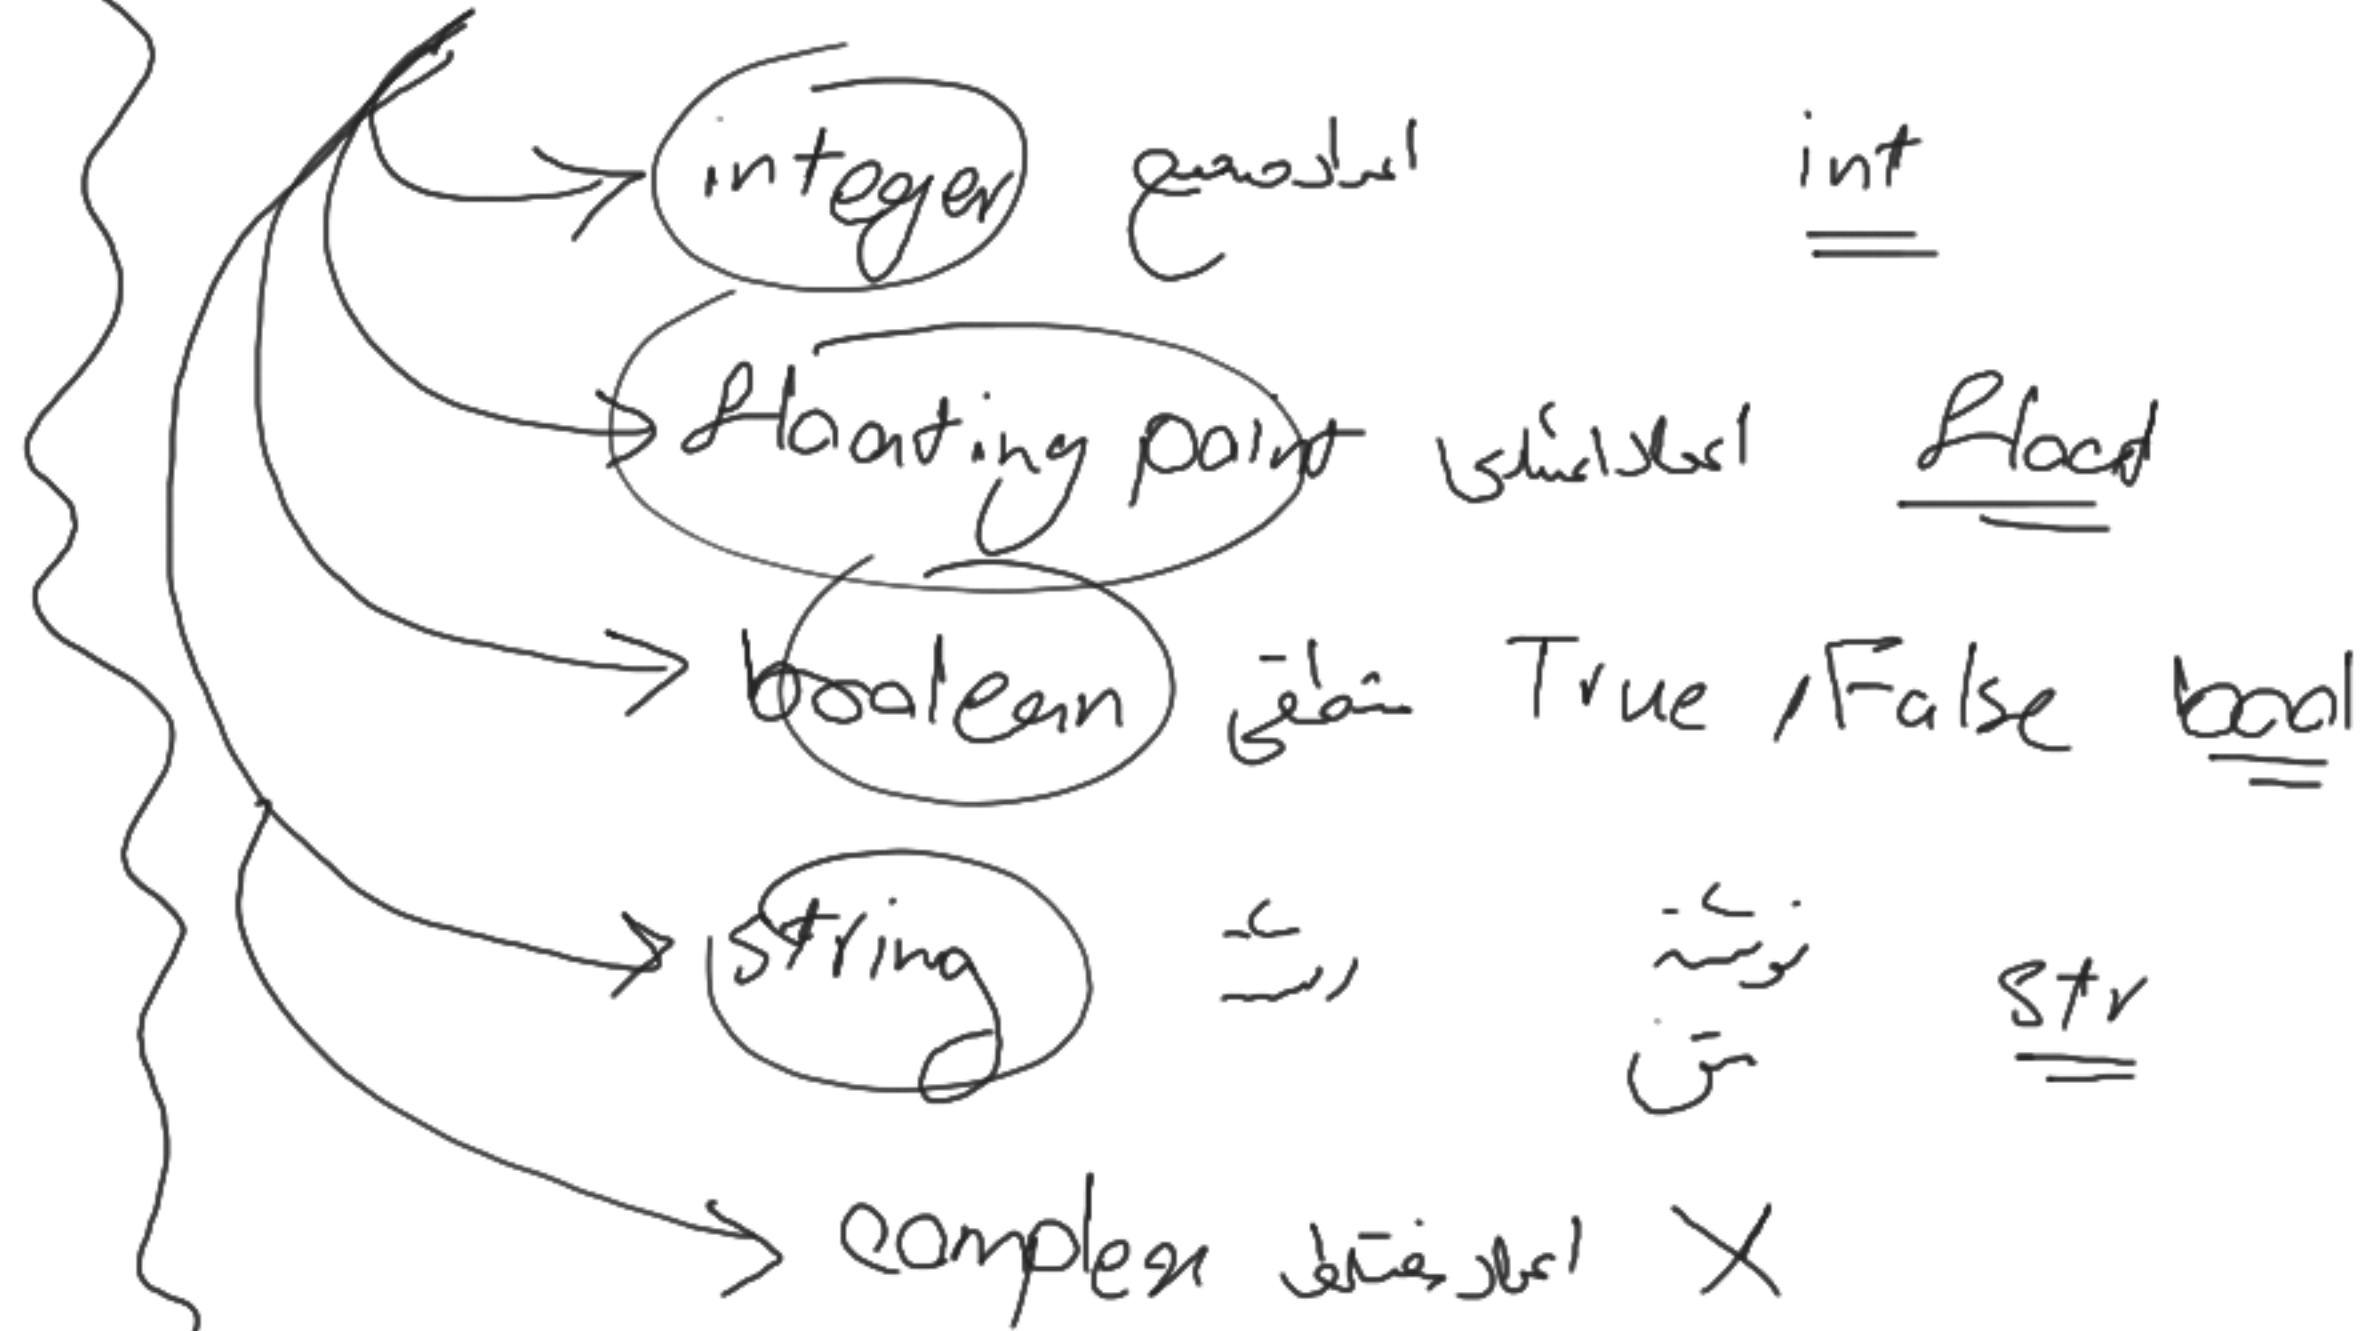 integer اعداد صحیح int
floating point اعداد اعشاری float
boolean منطقی True , False bool
string رشته نوشته str
متن
complex اعداد مختلط X